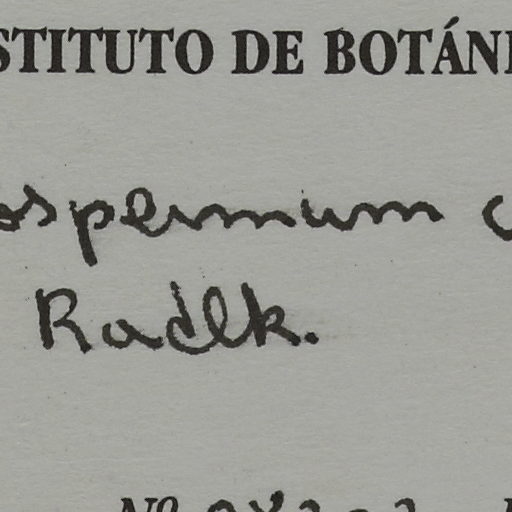 STITUTO DE BOTÁN
ospermum c
Radlk.
Nº